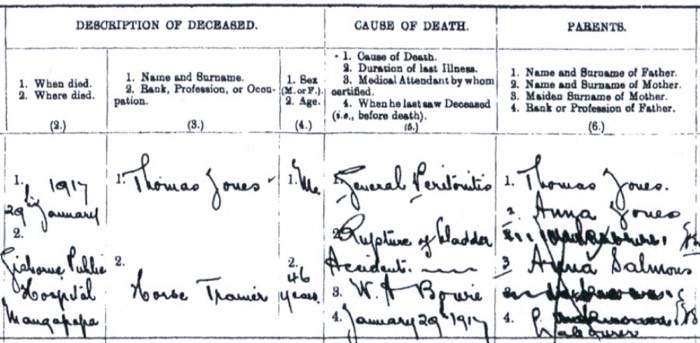 DESCRIPTION OF DECEASED.
CAUSE OF DEATH.
PARENTS.
1. When died.
2. Where died.
(2.)
1. Name and Surname.
2. Rank, Profession, or Occu-
pation.
(3.)
1. Sex
(M. or F.).
2. Age.
(4.)
1. Cause of Death.
2. Duration of last Illness.
3. Medical Attendant by whom
certified.
4. When he last saw Deceased
(i.e., before death).
(5.)
1. Name and Surname of Father.
2. Name and Surname of Mother.
3. Maiden Surname of Mother.
4. Rank or Profession of Father.
(6.)
1. 1917
29 January
2.
Gisborne Public
Hospital
Mangapapa
1. Thomas Jones
2.
Horse Trainer
1. M
2.
46
years
1. General Peritonitis
2. Rupture of bladder
Accident.
3. W. Bowie
4. January 29 1917
1. Thomas Jones.
2. Anna Jones
3 Anna Salmon
4.
Labourer